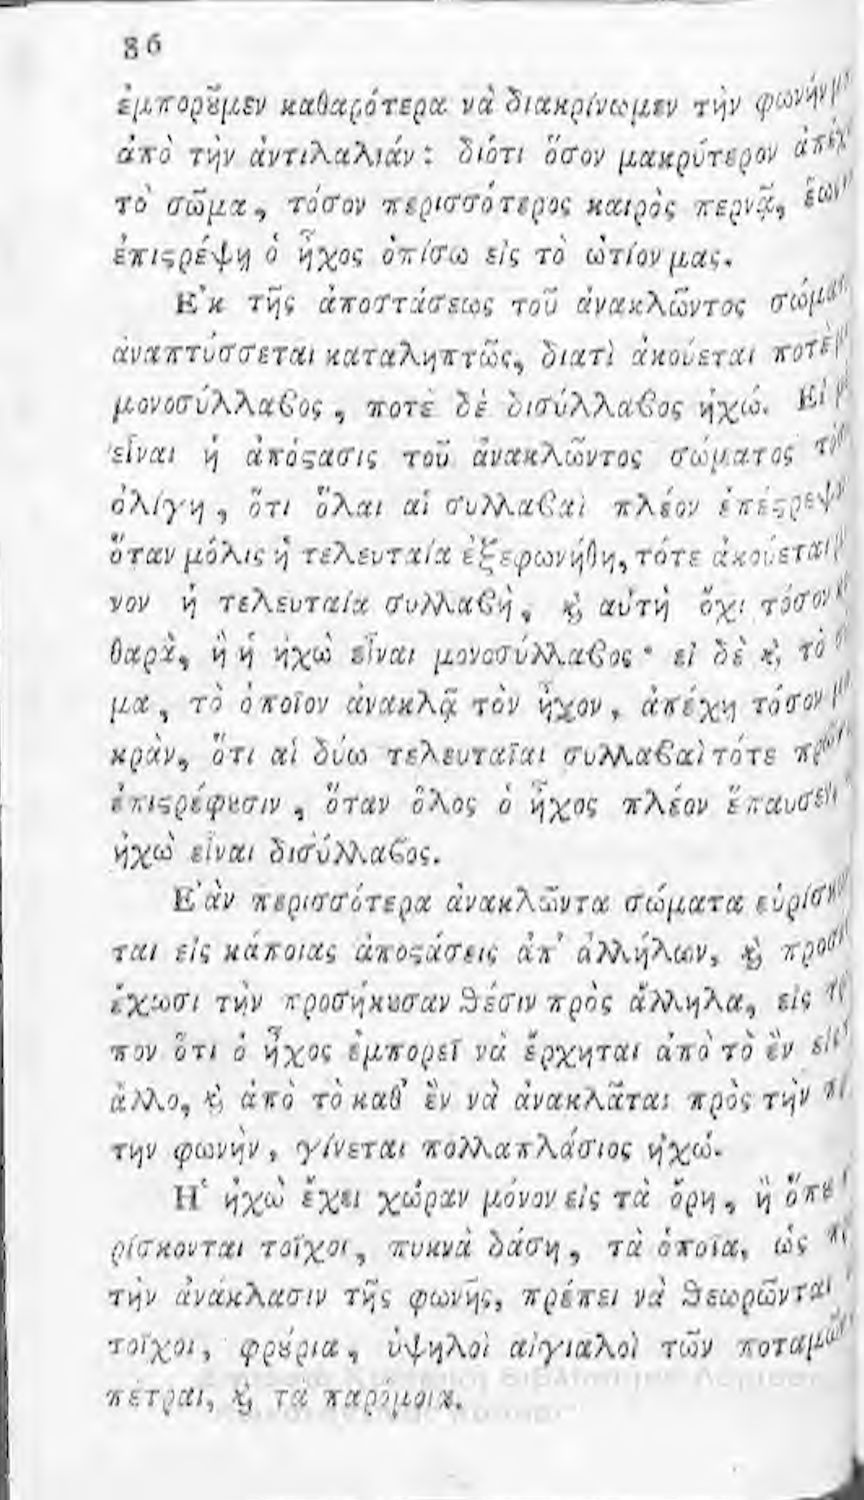 86
ἐμποροῦμεν καθαρότερα νὰ διακρίνωμεν τὴν φωνήν
ἀπὸ τὴν ἀντιλαλιάν: διότι ὅσον μακρύτερον
τὸ σῶμα, τόσον περισσότερος καιρὸς περνᾷ,
ἐπιςρέψῃ ὁ ἦχος ὀπίσω εἰς τὸ ὠτίον μας.
Ἐκ τῆς ἀποστάσεως τοῦ ἀνακλῶντος
ἀναπτύσσεται καταληπτῶς, διατὶ ἀκούεται
μονοσύλλαβος, ποτὲ δὲ δισύλλαβος ἠχώ. Εἰ
εἶναι ἡ ἀπόςασις τοῦ ἀνακλῶντος σώματος
ὀλίγη, ὅτι ὅλαι αἱ συλλαβαὶ πλέον
ὅταν μόλις ἡ τελευταία ἐξεφωνήθη, τότε ἀκούεται
νον ἡ τελευταία συλλαβὴ, ϗ αὐτὴ ὄχι τόσον
θαρὰ, ἢ ἡ ἠχὼ εἶναι μονοσύλλαβος· εἰ δὲ ϗ τὸ
μα, τὸ ὁποῖον ἀνακλᾷ τὸν ἦχον, ἀπέχῃ τόσον
κρὰν, ὅτι αἱ δύω τελευταῖαι συλλαβαὶ τότε
ἐπιςρέφȣσιν, ὅταν ὅλος ὁ ἦχος πλέον ἔπαυσεν
ἠχὼ εἶναι δισύλλαβος.
Ἐὰν περισσότερα ἀνακλῶντα σώματα
ται εἰς κάποιας ἀποςάσεις ἀπ' ἀλλήλων, ϗ
ἔχωσι τὴν προσήκȣσαν θέσιν πρὸς ἄλληλα, εἰς
πον ὅτι ὁ ἦχος ἐμπορεῖ νὰ ἔρχηται ἀπὸ τὸ ἓν εἰς
ἄλλο, ϗ ἀπὸ τὸ καθ' ἓν νὰ ἀνακλᾶται πρὸς τὴν
την φωνὴν, γίνεται πολλαπλάσιος ἠχώ.
Ἡ ἠχὼ ἔχει χώραν μόνον εἰς τὰ ὄρη, ἢ ὅπȣ
ρίσκονται τοῖχοι, πυκνὰ δάση, τὰ ὁποῖα, ὡς
τὴν ἀνάκλασιν τῆς φωνῆς, πρέπει νὰ θεωρῶνται
τοῖχοι, φρȣρια, ὑψηλοὶ αἰγιαλοὶ τῶν
πέτραι, ϗ τὰ παρόμοια.